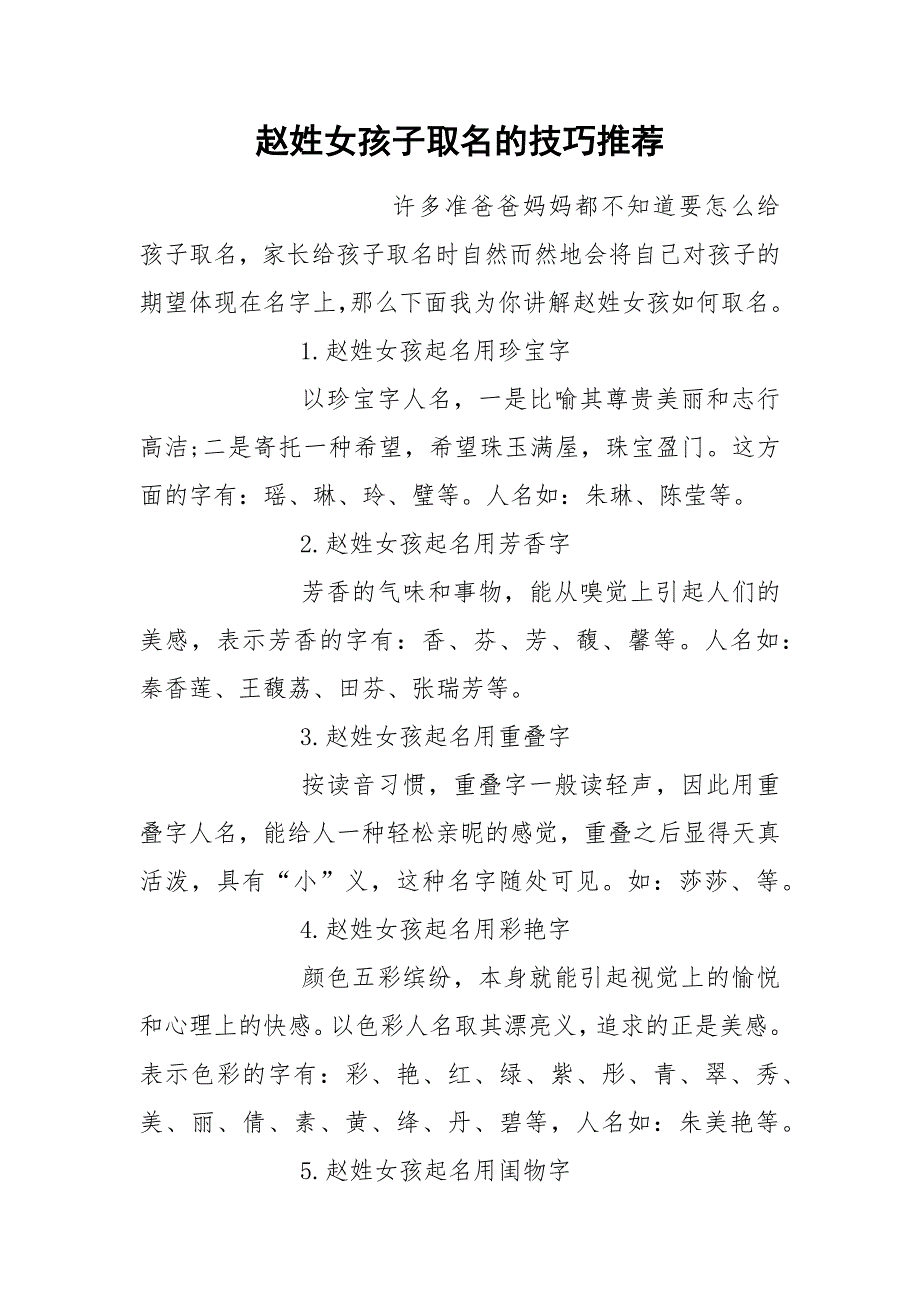 赵姓女孩子取名的技巧推荐
许多准爸爸妈妈都不知道要怎么给
孩子取名，家长给孩子取名时自然而然地会将自己对孩子的
期望体现在名字上,那么下面我为你讲解赵姓女孩如何取名。
1.赵姓女孩起名用珍宝字
以珍宝字人名，一是比喻其尊贵美丽和志行
高洁;二是寄托一种希望，希望珠玉满屋，珠宝盈门。这方
面的字有：瑶、琳、玲、璧等。人名如：朱琳、陈莹等。
2.赵姓女孩起名用芳香字
芳香的气味和事物，能从嗅觉上引起人们的
美感，表示芳香的字有：香、芬、芳、馥、馨等。人名如：
秦香莲、王馥荔、田芬、张瑞芳等。
3.赵姓女孩起名用重叠字
按读音习惯，重叠字一般读轻声，因此用重
叠字人名，能给人一种轻松亲昵的感觉，重叠之后显得天真
活泼，具有“小”义，这种名字随处可见。如：莎莎、等。
4.赵姓女孩起名用彩艳字
颜色五彩缤纷，本身就能引起视觉上的愉悦
和心理上的快感。以色彩人名取其漂亮义，追求的正是美感。
表示色彩的字有：彩、艳、红、绿、紫、彤、青、翠、秀、
美、丽、倩、素、黄、绛、丹、碧等，人名如：朱美艳等。
5.赵姓女孩起名用闺物字